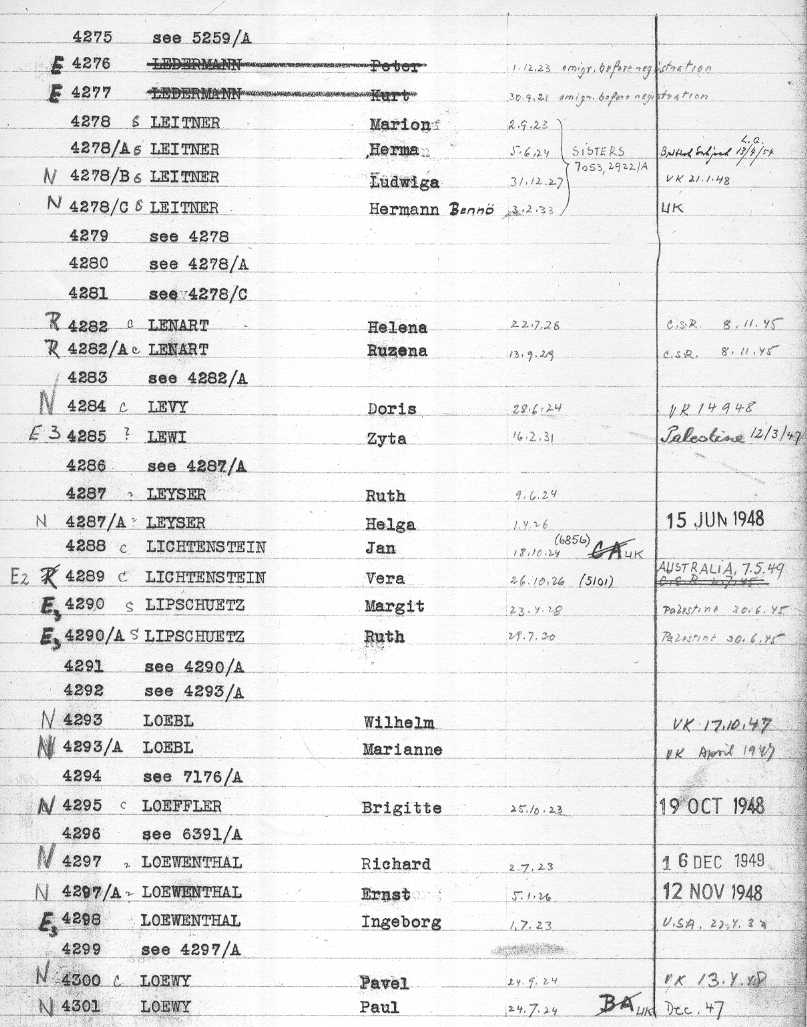 4275 see 5259/A
E 4276 LEDERMANN Peter 1.12.23 emigr. before registration
E 4277 LEDERMANN Kurt 30.9.21 emigr. before registration
4278 S LEITNER Marion 2.9.23
4278/A S LEITNER Herma 5.6.24 SISTERS 7053, 2922/A British Subject
N 4278/B S LEITNER Ludwiga 31.12.27 VK 21.1.48
N 4278/C S LEITNER Hermann Benno 3.2.33 UK
4279 see 4278
4280 see 4278/A
4281 see 4278/C
R 4282 C LENART Helena 22.7.26 C.S.R. 8.11.45
R 4282/A C LENART Ruzena 13.9.29 C.S.R. 8.11.45
4283 see 4282/A
N 4284 C LEVY Doris 28.6.24 VK 14 9 48
E 3 4285 ? LEWI Zyta 16.2.31 Palestine 12/3/47
4286 see 4287/A
4287 LEYSER Ruth 9.6.24
N 4287/A LEYSER Helga 1.4.26 15 JUN 1948
4288 C LICHTENSTEIN Jan 18.10.24 (6856) CA UK
E2 R 4289 C LICHTENSTEIN Vera 26.10.26 (5101) AUSTRALIA, 7.5.49
E3 4290 S LIPSCHUETZ Margit 23.4.28 Palestine 20.6.45
E3 4290/A S LIPSCHUETZ Ruth 29.7.30 Palestine 20.6.45
4291 see 4290/A
4292 see 4293/A
N 4293 LOEBL Wilhelm VK 17.10.47
N 4293/A LOEBL Marianne VK April 1947
4294 see 7176/A
N 4295 C LOEFFLER Brigitte 25.10.23 19 OCT 1948
4296 see 6391/A
N 4297 LOEWENTHAL Richard 2.7.23 16 DEC 1949
N 4297/A LOEWENTHAL Ernst 5.1.26 12 NOV 1948
E3 4298 LOEWENTHAL Ingeborg 1.7.23 U.S.A.
4299 see 4297/A
N 4300 C LOEWY Pavel 24.9.24 VK 13.4.48
N 4301 LOEWY Paul 24.7.24 BA UK Dec. 47